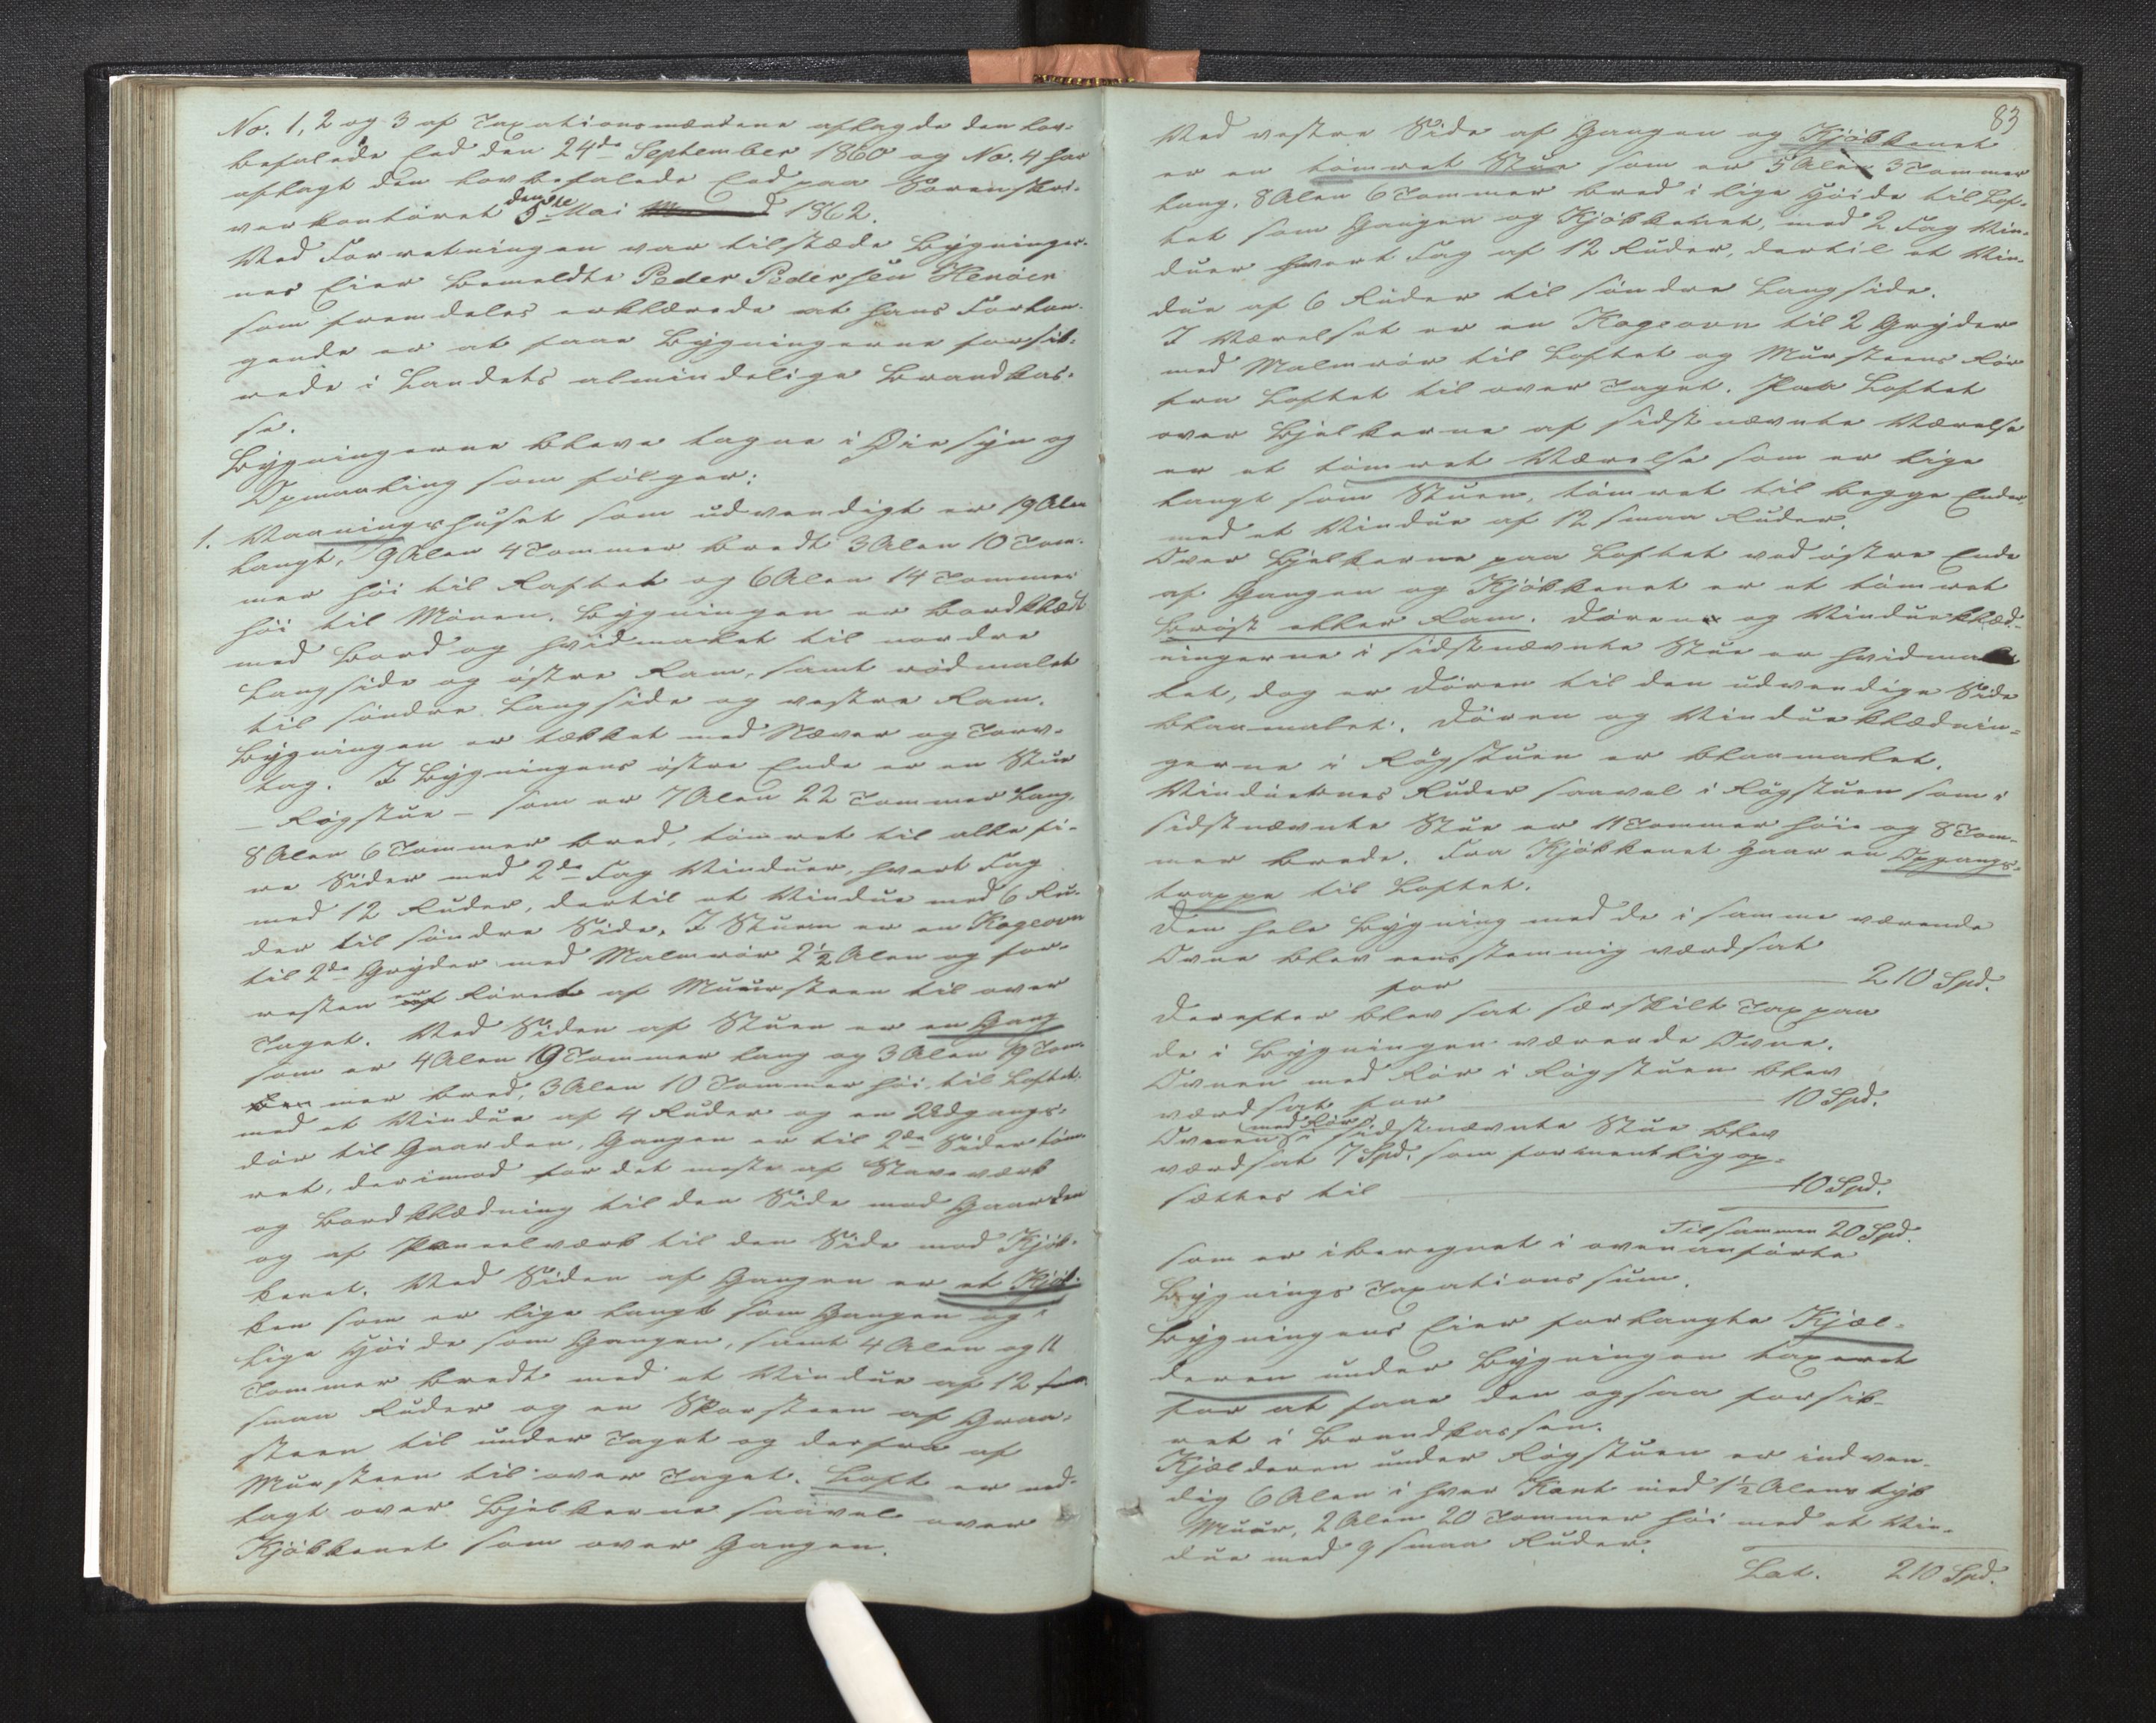 No. 1, 2 og 3 af Taxationsmændene aflagde den lov-
befalede Eed den 24de September 1860 og No. 4 har
aflagt den lovbefalede Eed paa Sorenskri-
verkontoret den 5te Mai 1862.
Ved Forretningen var tilstæde Bygninger-
nes Eier bemeldte Peder Pedersen Henøen
som fremdeles erklærede at hans Forlan-
gende er at faae Bygningerne forsik-
rede i Landets almindelige Brandkas-
se.
Bygningerne bleve tagne i Øiesyn og
Opmaaling som følger:
1. Vaaningshuset som udvendigt er 19 Alen
langt, 9 Alen 4 Tommer bredt 3 Alen 10 Tom-
mer høi til Raftet og 6 Alen 14 Tommer
høi til Mønen. Bygningen er bordklædt
med Bord og hvidmalet til nordre
Langside og østre Ram, samt rødmalet
til søndre Langside og vestre Ram.
Bygningen er tækket med Næver og Torv-
tag. I Bygningens østre Ende er en Stue
– Røgstue – som er 7 Alen 22 Tommer lang,
8 Alen 6 Tommer bred, tømret til alle fi-
re Sider med 2de Fag Vinduer, hvert Fag
med 12 Ruder, dertil et Vindue med 6 Ru-
der til søndre Side. I Stuen er en Kogeovn
til 2de Gryder med Malmrør 2½ Alen og for-
resten er Røret af Muursteen til over
Taget. Ved Siden af Stuen er en Gang
som er 4 Alen 19 Tommer lang og 3 Alen 19 Tom-
mer bred, 3 Alen 10 Tommer høi til Loftet
med et Vindue af 4 Ruder og en Udgangs-
dør til Gaarden, Gangen er til 2de Sider tøm-
ret, derimod for det meste af Staveværk
og Bordklædning til den Side mod Gaarden
og af Paneelværk til den Side mod Kjøk-
kenet. Ved Siden af Gangen er et Kjøk-
ken som er lige langt som Gangen og i
lige Høide som Gangen, samt 4 Alen og 11
Tommer bredt med et Vindue af 12
smaa Ruder og en Skorsteen af Graa-
steen til under Taget og derfra af
Mursteen til over Taget. Loft er ned-
lagt over Bjelkerne saavel over
Kjøkkenet som over Gangen.
83
Ved vestre Side af Gangen og Kjøkkenet
er en tømret Stue som er 5 Alen 3 Tommer
lang, 8 Alen 6 Tommer bred i lige Høide til Lof-
tet som Gangen og Kjøkkenet, med 2 Fag Vin-
duer hvert Fag af 12 Ruder, dertil et Vin-
due af 6 Ruder til søndre Langside.
I Værelset er en Kogeovn til 2 Gryder
med Malmrør til Loftet og Mursteens Rør
fra Loftet til over Taget. Paa Loftet
over Bjelkerne af sidstnævnte Værelse
er et tømret Værelse som er lige
langt som Stuen, tømret til begge Ender,
med et Vindue af 12 smaa Ruder.
Over Bjelkerne paa Loftet ved østre Ende
af Gangen og Kjøkkenet er et tømret
Brøst eller Ram. Døren og Vindueklæd-
ningerne i sidstnævnte Stue er hvidma-
let, dog er Døren til den udvendige Side
blaamalet. Døren og Vindueklædnin-
gerne i Røgstuen er blaamalet.
Vinduernes Ruder saavel i Røgstuen som i
sidstnævnte Stue er 11 Tommer høie og 8 Tom-
mer brede. Fra Kjøkkenet gaar en Opgangs-
trappe til Loftet.
Den hele Bygning med de i samme værende
Ovne blev eensstemmig værdsat
for 210 Spd.
Derefter blev sat særskilt Tax paa
de i Bygningen værende Ovne.
Ovnen med Rør i Røgstuen blev
værdsat for 10 Spd.
Ovnen med Rør i sidstnævnte Stue blev
værdsat 7 Spd. som formentlig op-
sættes til 10 Spd.
Tilsammen 20 Spd.
som er iberegnet i ovenanførte
Bygnings Taxationssum.
Bygningens Eier forlangte Kjæl-
deren under Bygningen taxeret
for at faae den ogsaa forsik-
ret i Brandkassen.
Kjælderen under Røgstuen er indven-
dig 6 Alen i hver Kant med 1½ Alens tyk
Muur, 2 Alen 20 Tommer høi med et Vin-
due med 9 smaa Ruder.
Lat. 210 Spd.